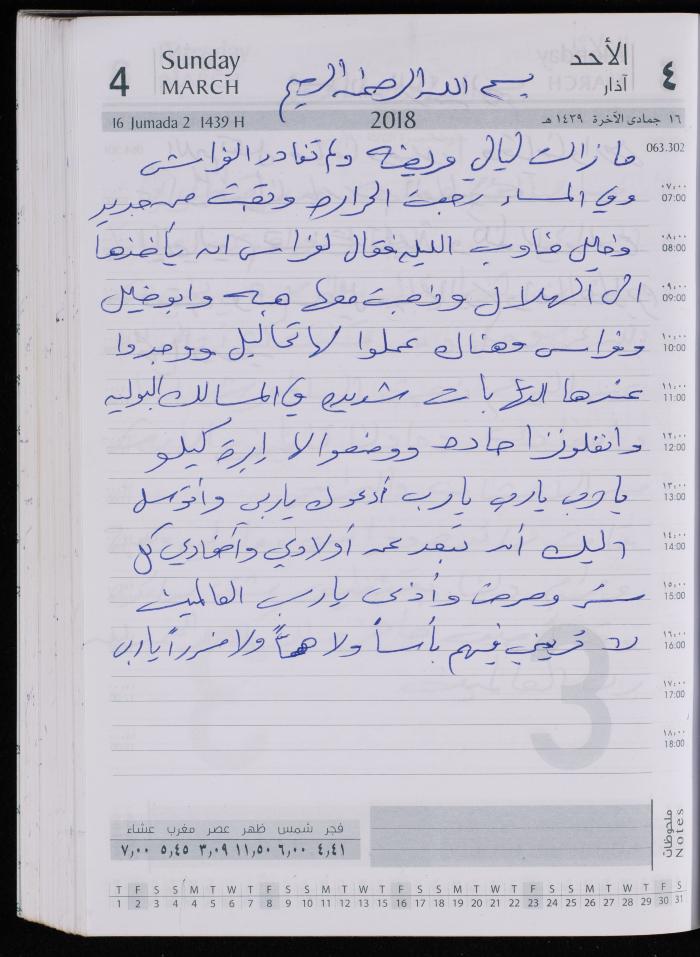 4
Sunday
MARCH
الأحد
آذار
٤
بسم الله الرحمن الرحيم
16 Jumada 2 1439 H
2018
١٦ جمادى الآخرة ١٤٣٩ هـ
063.302
ما زالت ليالي مريضه ولم تغادر الفراش
٠٧:٠٠
07:00
وفي المساء رجعت الحرارة وتعبت من جديد
٠٨:٠٠
08:00
وخليل مناوب الليله فقال لفراس ان يأخذها
٠٩:٠٠
09:00
الى الهلال وذهبت معها هبه وابو خليل
١٠:٠٠
10:00
وفراس وهناك عملوا لها تحاليل ووجدوا
١١:٠٠
11:00
عندها التهابات شديده في المسالك البوليه
١٢:٠٠
12:00
وانفلونزا حاده ووضعوا لها إبرة كيلو
١٣:٠٠
13:00
يارب يارب يارب أدعوك ياربي وأتوسل
١٤:٠٠
14:00
اليك أن تبعد عن أولادي وأحفادي كل
١٥:٠٠
15:00
شر ومرض وأذى يارب العالمين
١٦:٠٠
16:00
لا تريني فيهم بأساً ولا هماً ولا ضرراً يارب
١٧:٠٠
17:00
١٨:٠٠
18:00
3
فجر شمس ظهر عصر مغرب عشاء
٤,٤١ ٦,٠٠ ١١,٥٠ ٣,٠٩ ٥,٤٥ ٧,٠٠
ملحوظات
Notes
T F S S M T W T F S S M T W T F S S M T W T F S S M T W T F S
1 2 3 4 5 6 7 8 9 10 11 12 13 14 15 16 17 18 19 20 21 22 23 24 25 26 27 28 29 30 31